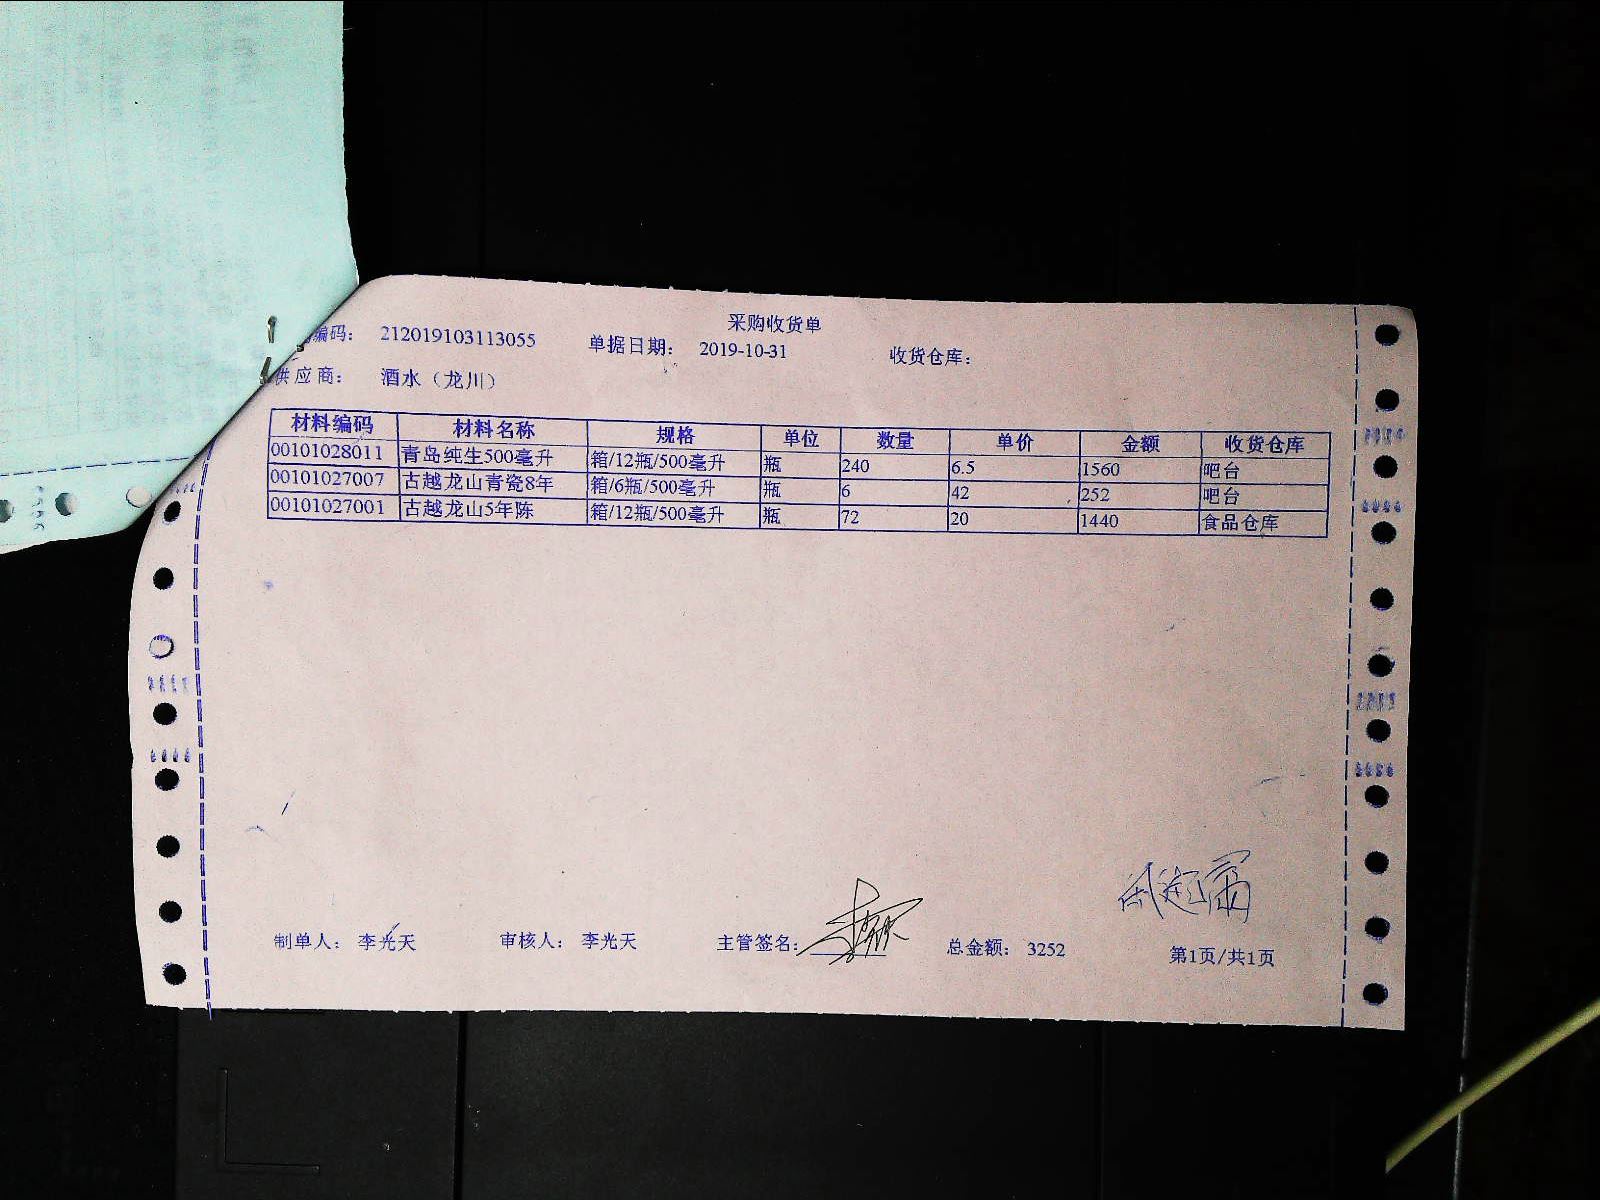 采购收货单
编码： 212019103113055 单据日期： 2019-10-31 收货仓库：
供应商： 酒水（龙川）
材料编码 材料名称 规格 单位 数量 单价 金额 收货仓库
00101028011 青岛纯生500毫升 箱/12瓶/500毫升 瓶 240 6.5 1560 吧台
00101027007 古越龙山青瓷8年 箱/6瓶/500毫升 瓶 6 42 252 吧台
00101027001 古越龙山5年陈 箱/12瓶/500毫升 瓶 72 20 1440 食品仓库
制单人： 李光天 审核人： 李光天 主管签名： 总金额： 3252 第1页/共1页